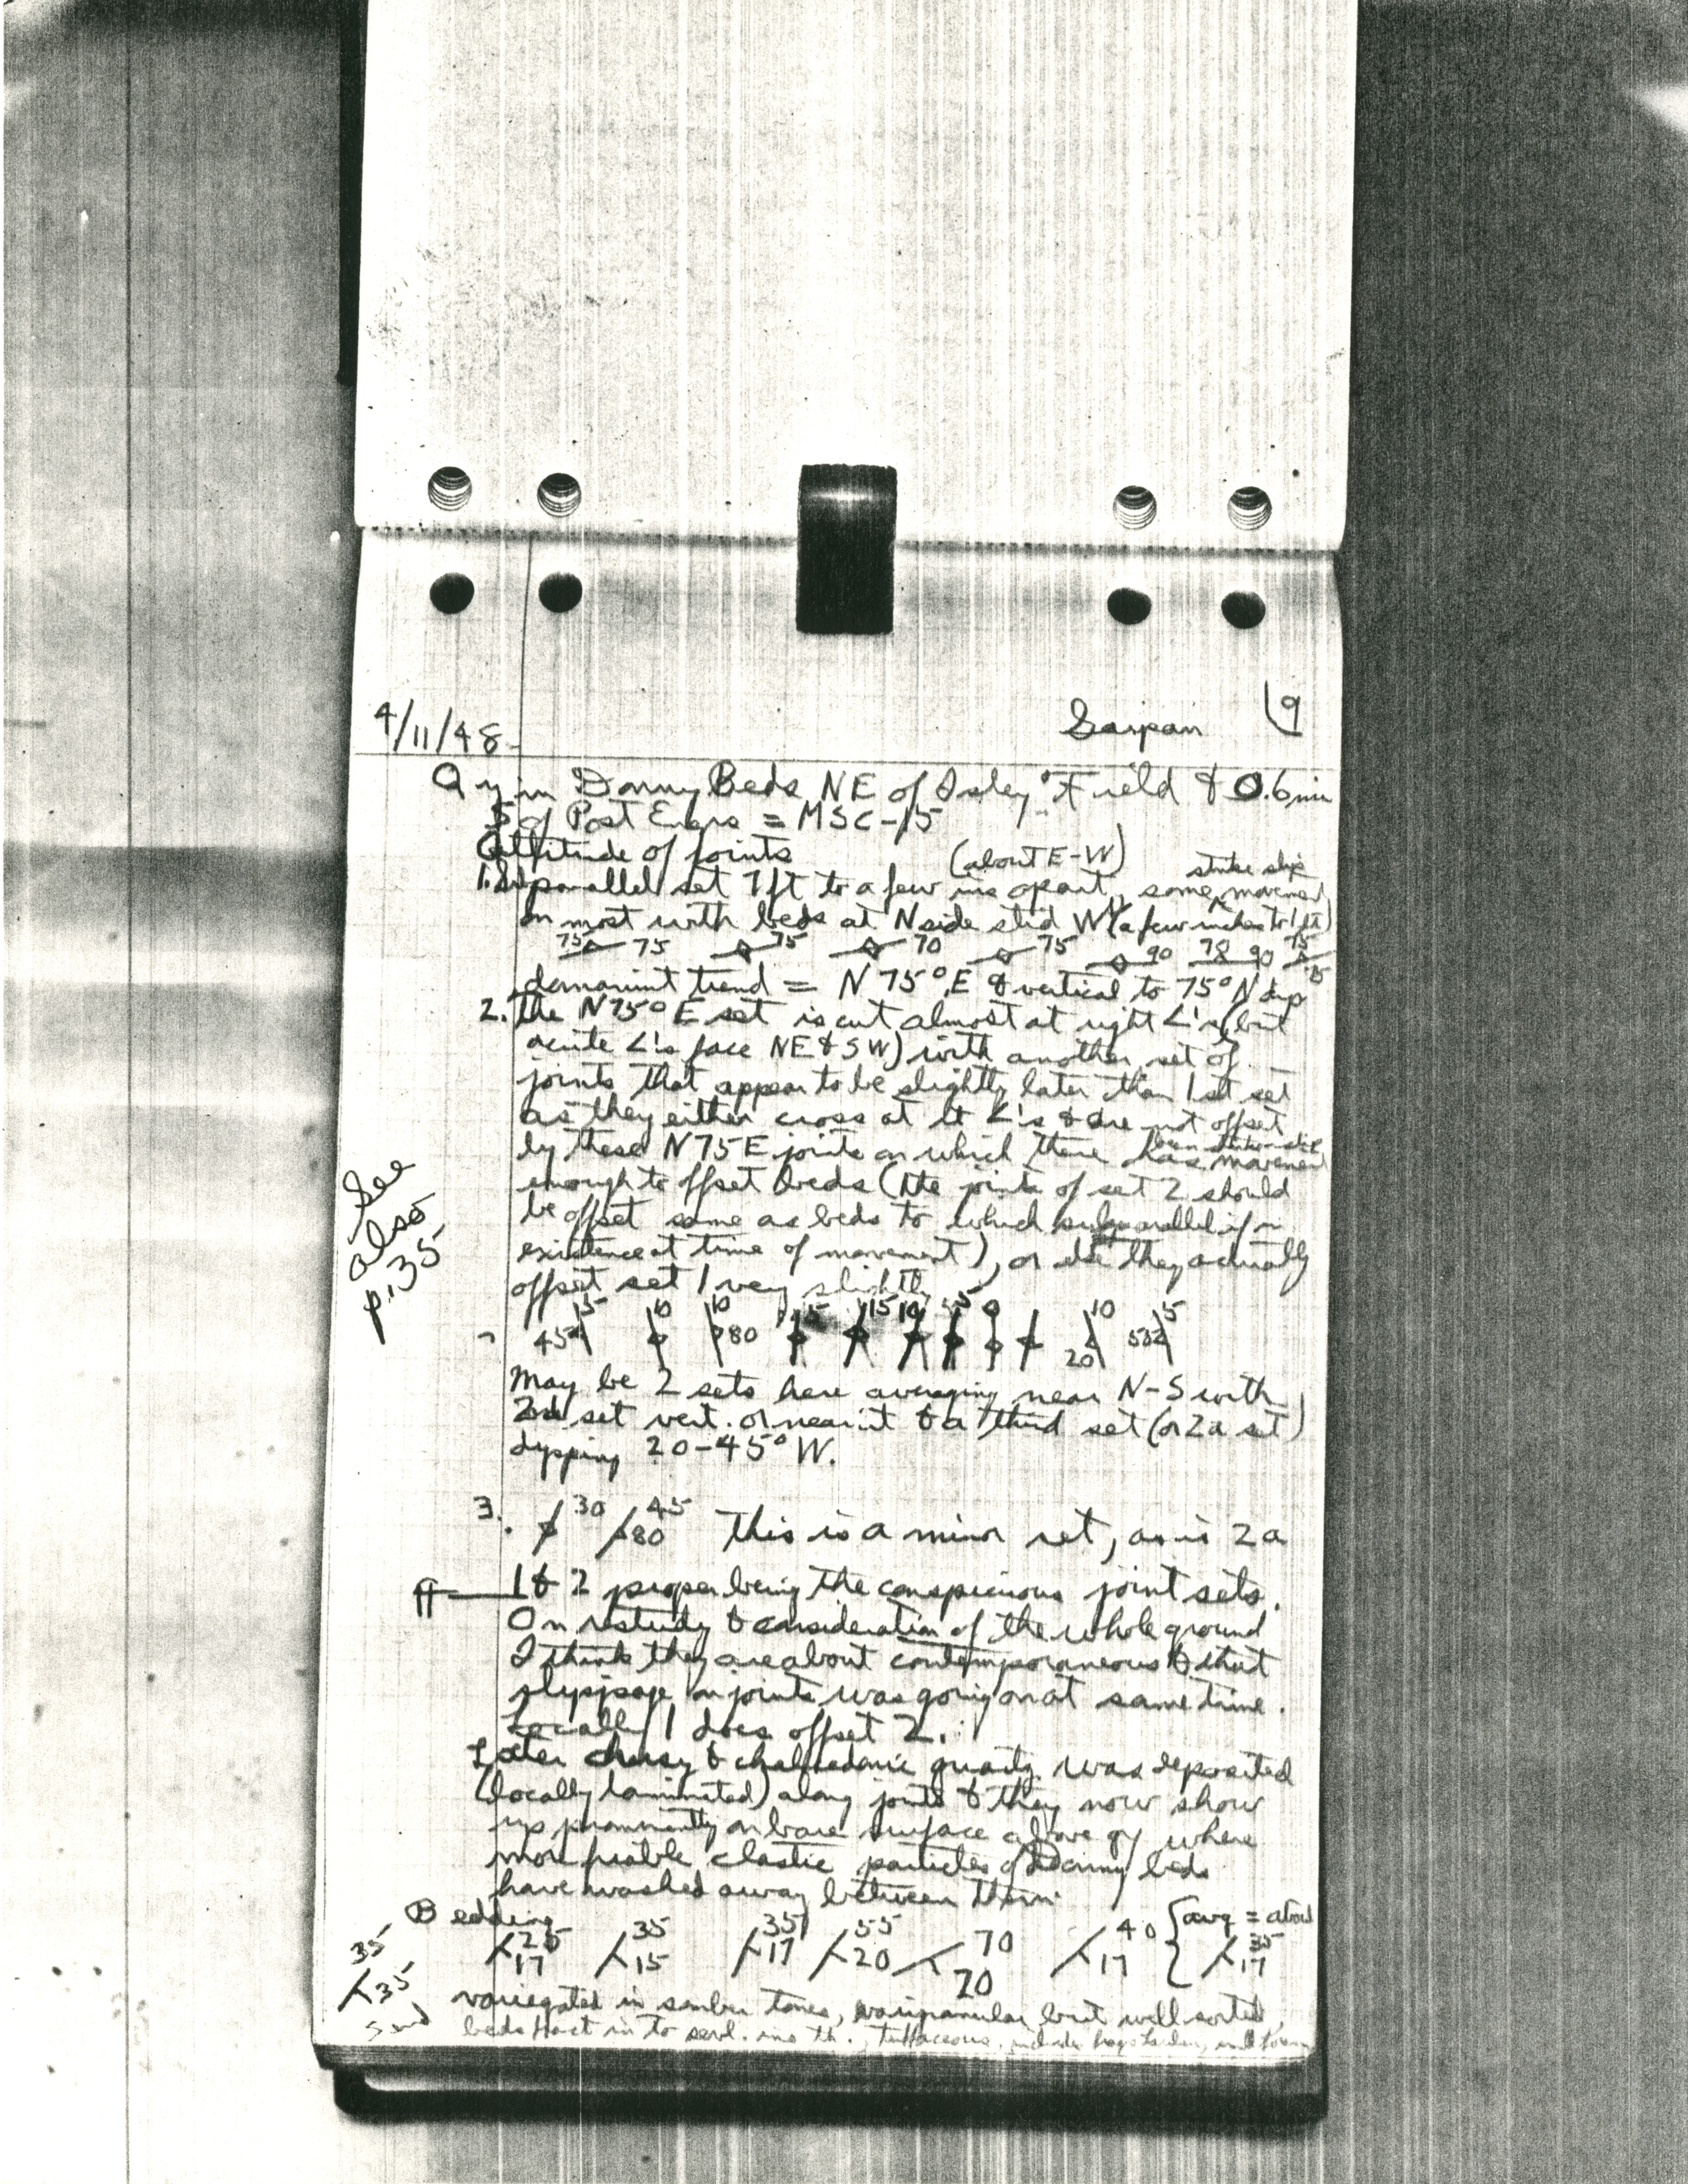 4/11/48
Saipan
9
Qy in Donny Beds NE of Isley Field & 0.6 mi
S of Post Engrs = MSC-15
Attitude of joints
(about E-W)
strike slip
1. Subparallel set 7 ft to a few ins apart, some movement
on most with beds at N side slid W (a few inches to 1 ft)
75 75 75 70 75 90 78 90 75
dominant trend = N 75° E & vertical to 75° N dip
2. The N75° E set is cut almost at right ∠'s (but
acute ∠'s face NE & SW) with another set of
joints that appear to be slightly later than 1st set
as they either cross at rt ∠'s & are not offset
by these N 75 E joints on which there has been strike-slip movement
enough to offset beds (the joints of set 2 should
be offset same as beds to which subparallel if in
existence at time of movement), or else they actually
offset set 1 very slightly
See
also
p. 35
45 5 10 10 80 15 15 10 5 9 10 20 5
May be 2 sets here averaging near N-S with
2nd set vert. or near it & a third set (or 2a set)
dipping 20-45° W.
3. 30 45 80 This is a minor set, as is 2a
1 & 2 proper being the conspicuous joint sets.
On restudy & consideration of the whole ground
I think they are about contemporaneous & that
slippage on joints was going on at same time.
Locally 1 does offset 2.
Later drusy & chalcedonic quartz was deposited
(locally laminated) along joints & they now show
up prominently on bare surface above qy where
more friable clastic particles of Donny beds
have washed away between them.
Bedding
25 17 35 15 35 17 55 20 70 20 40 17 {avg = about 35 17
35
35
variegated in somber tones, varigranular but well sorted,
beds in to sevl. ins th., tuffaceous, include